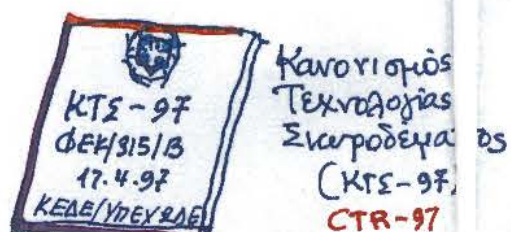 ΚΤΣ-97
ΦΕΚ/315/Β
17.4.97
ΚΕΔΕ/ΥΠΕΧΩΔΕ
Κανονισμός
Τεχνολογίας
Σκυροδέματος
(ΚΤΣ-97)
CTR-97